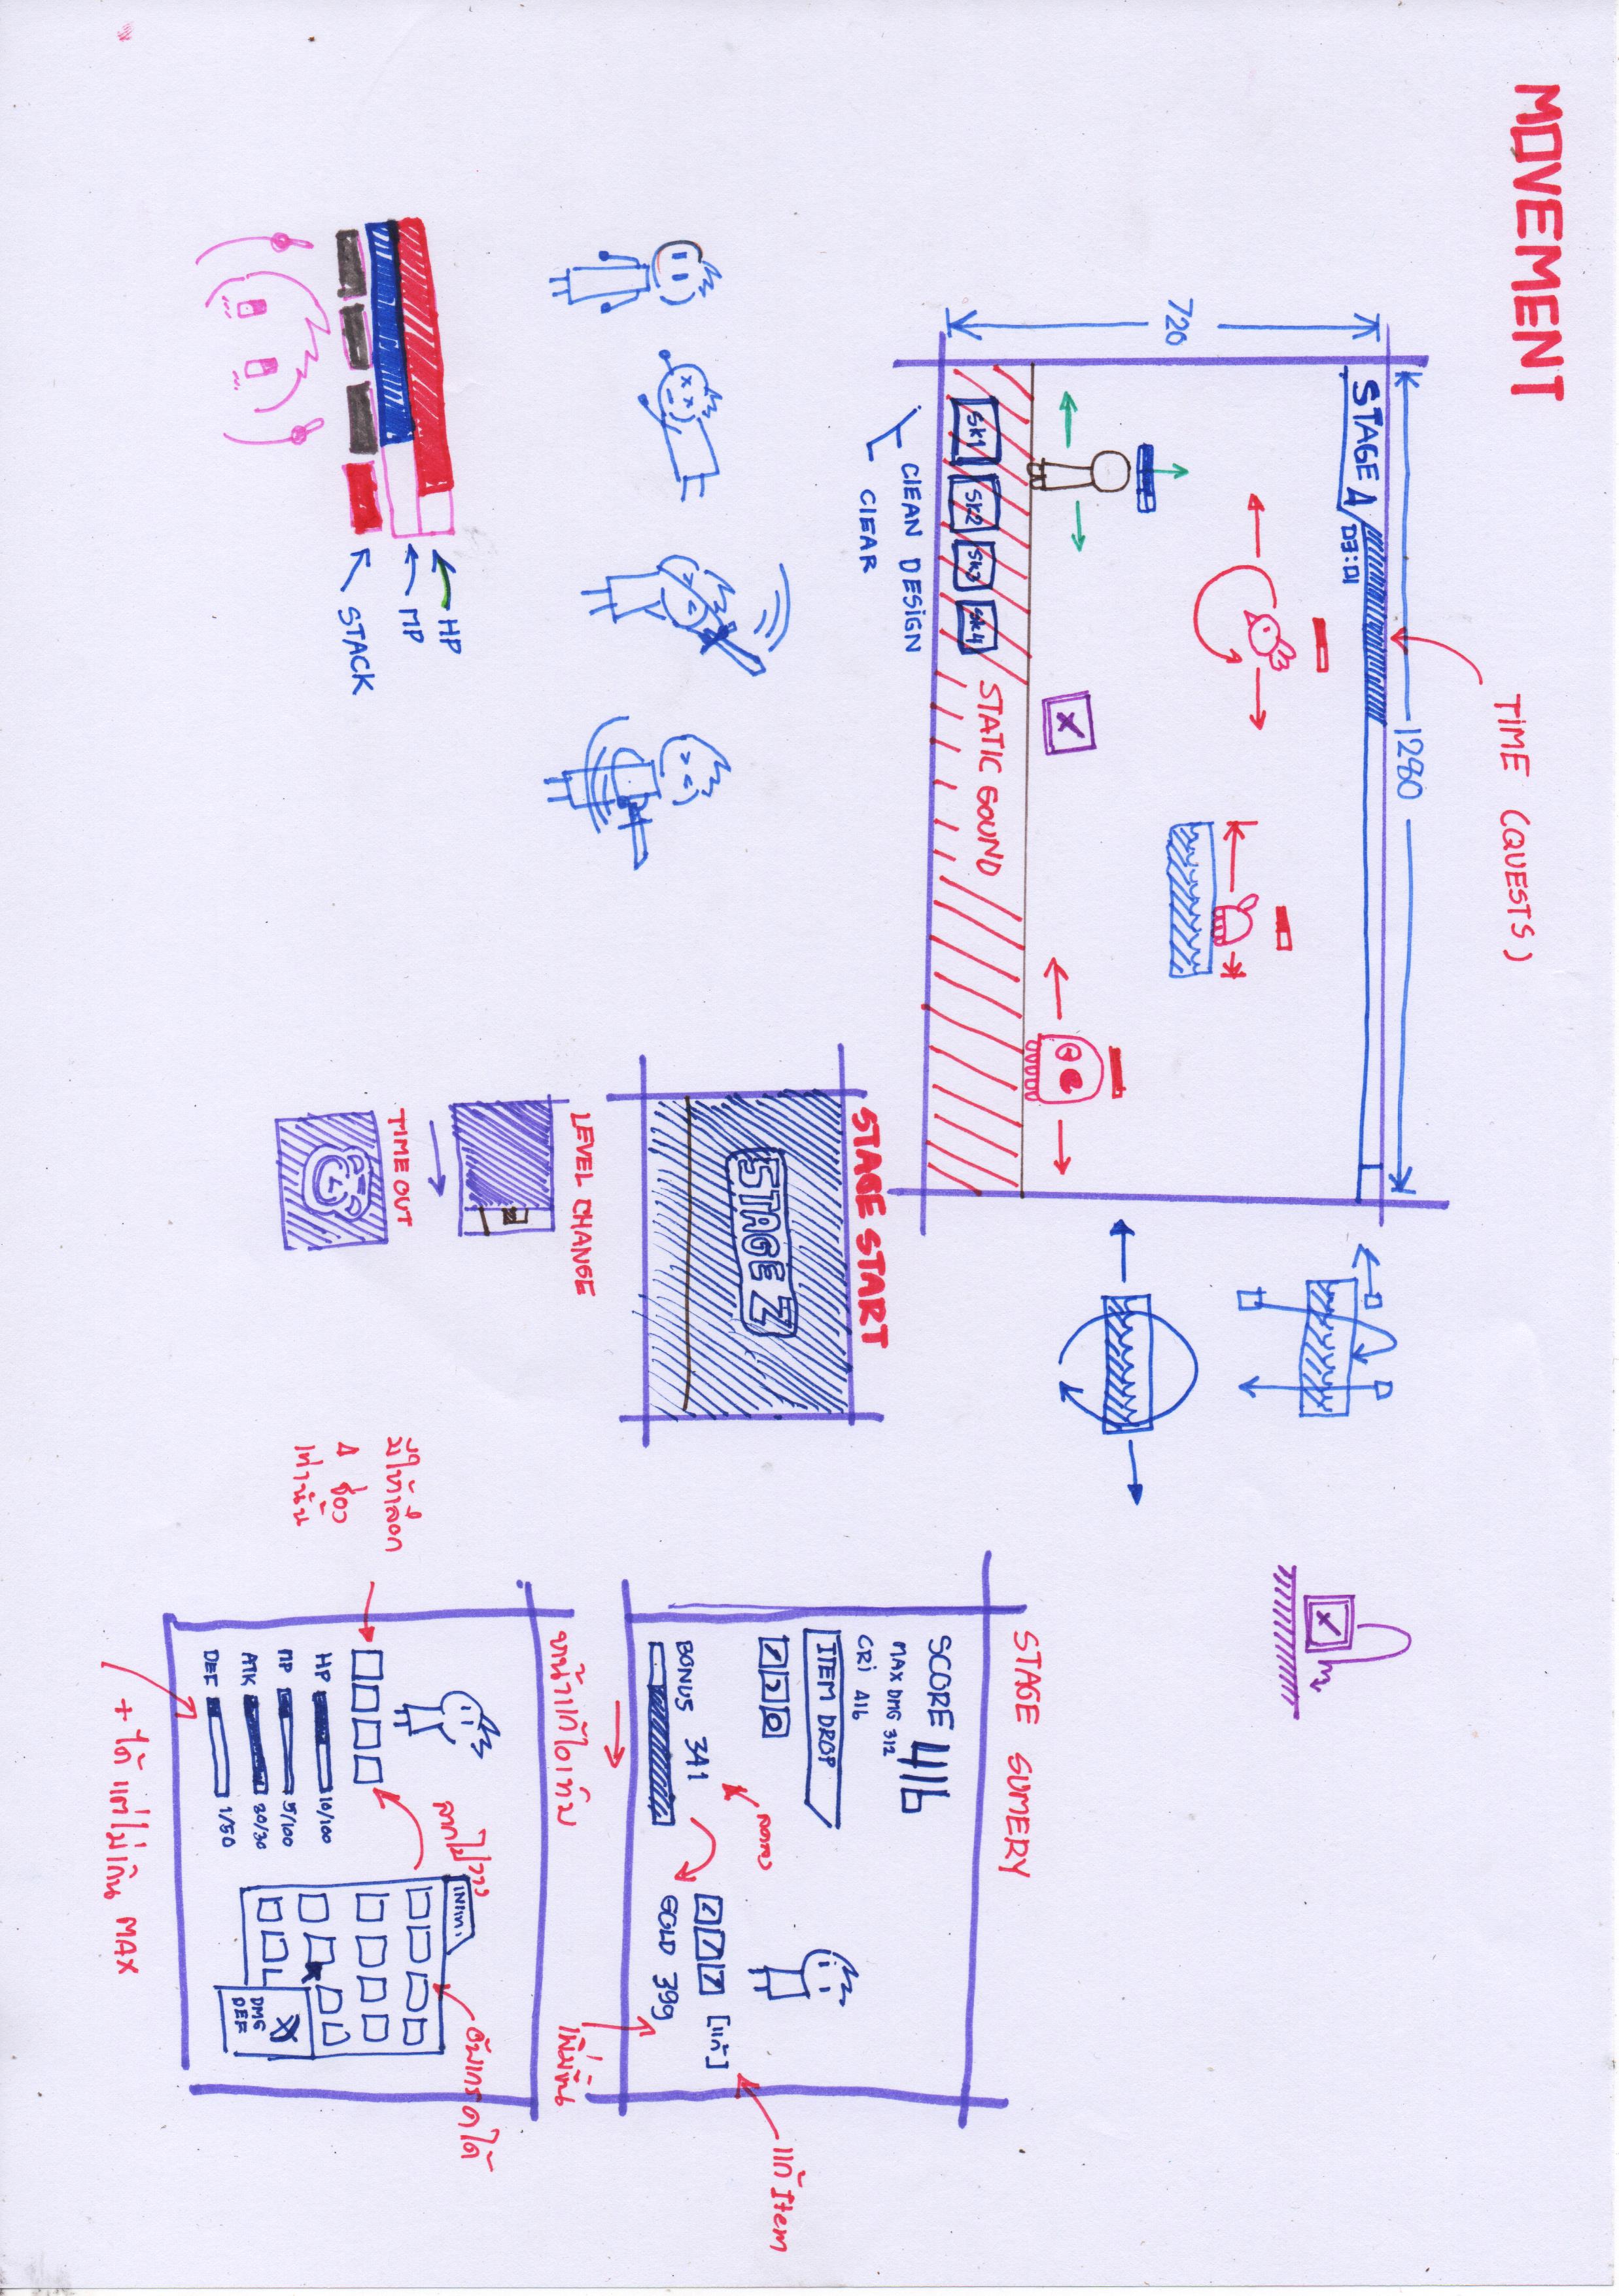 MOVEMENT
TIME (QUESTS)
1280
STAGE 4
03:01
720
SK1 SK2 SK3 SK4
STATIC GOUND
CLEAN DESIGN
CLEAR
STAGE START
STAGE 2
LEVEL CHANGE
TIME OUT
HP
MP
STACK
STAGE SUMERY
SCORE 416
MAX DMG 312
CRI 416
ITEM DROP
แก้ Item
ลดลง
BONUS 341
[แก้]
GOLD 399
เพิ่มขึ้น
หน้าแก้ไอเท็ม
ลากไปวาง
อัพเกรดได้
มีให้เลือก
4 ช่อง
เท่านั้น
HP 10/100
MP 5/100
ATK 30/30
DEF 1/50
DMG
DEF
+ ได้ แต่ไม่เกิน MAX